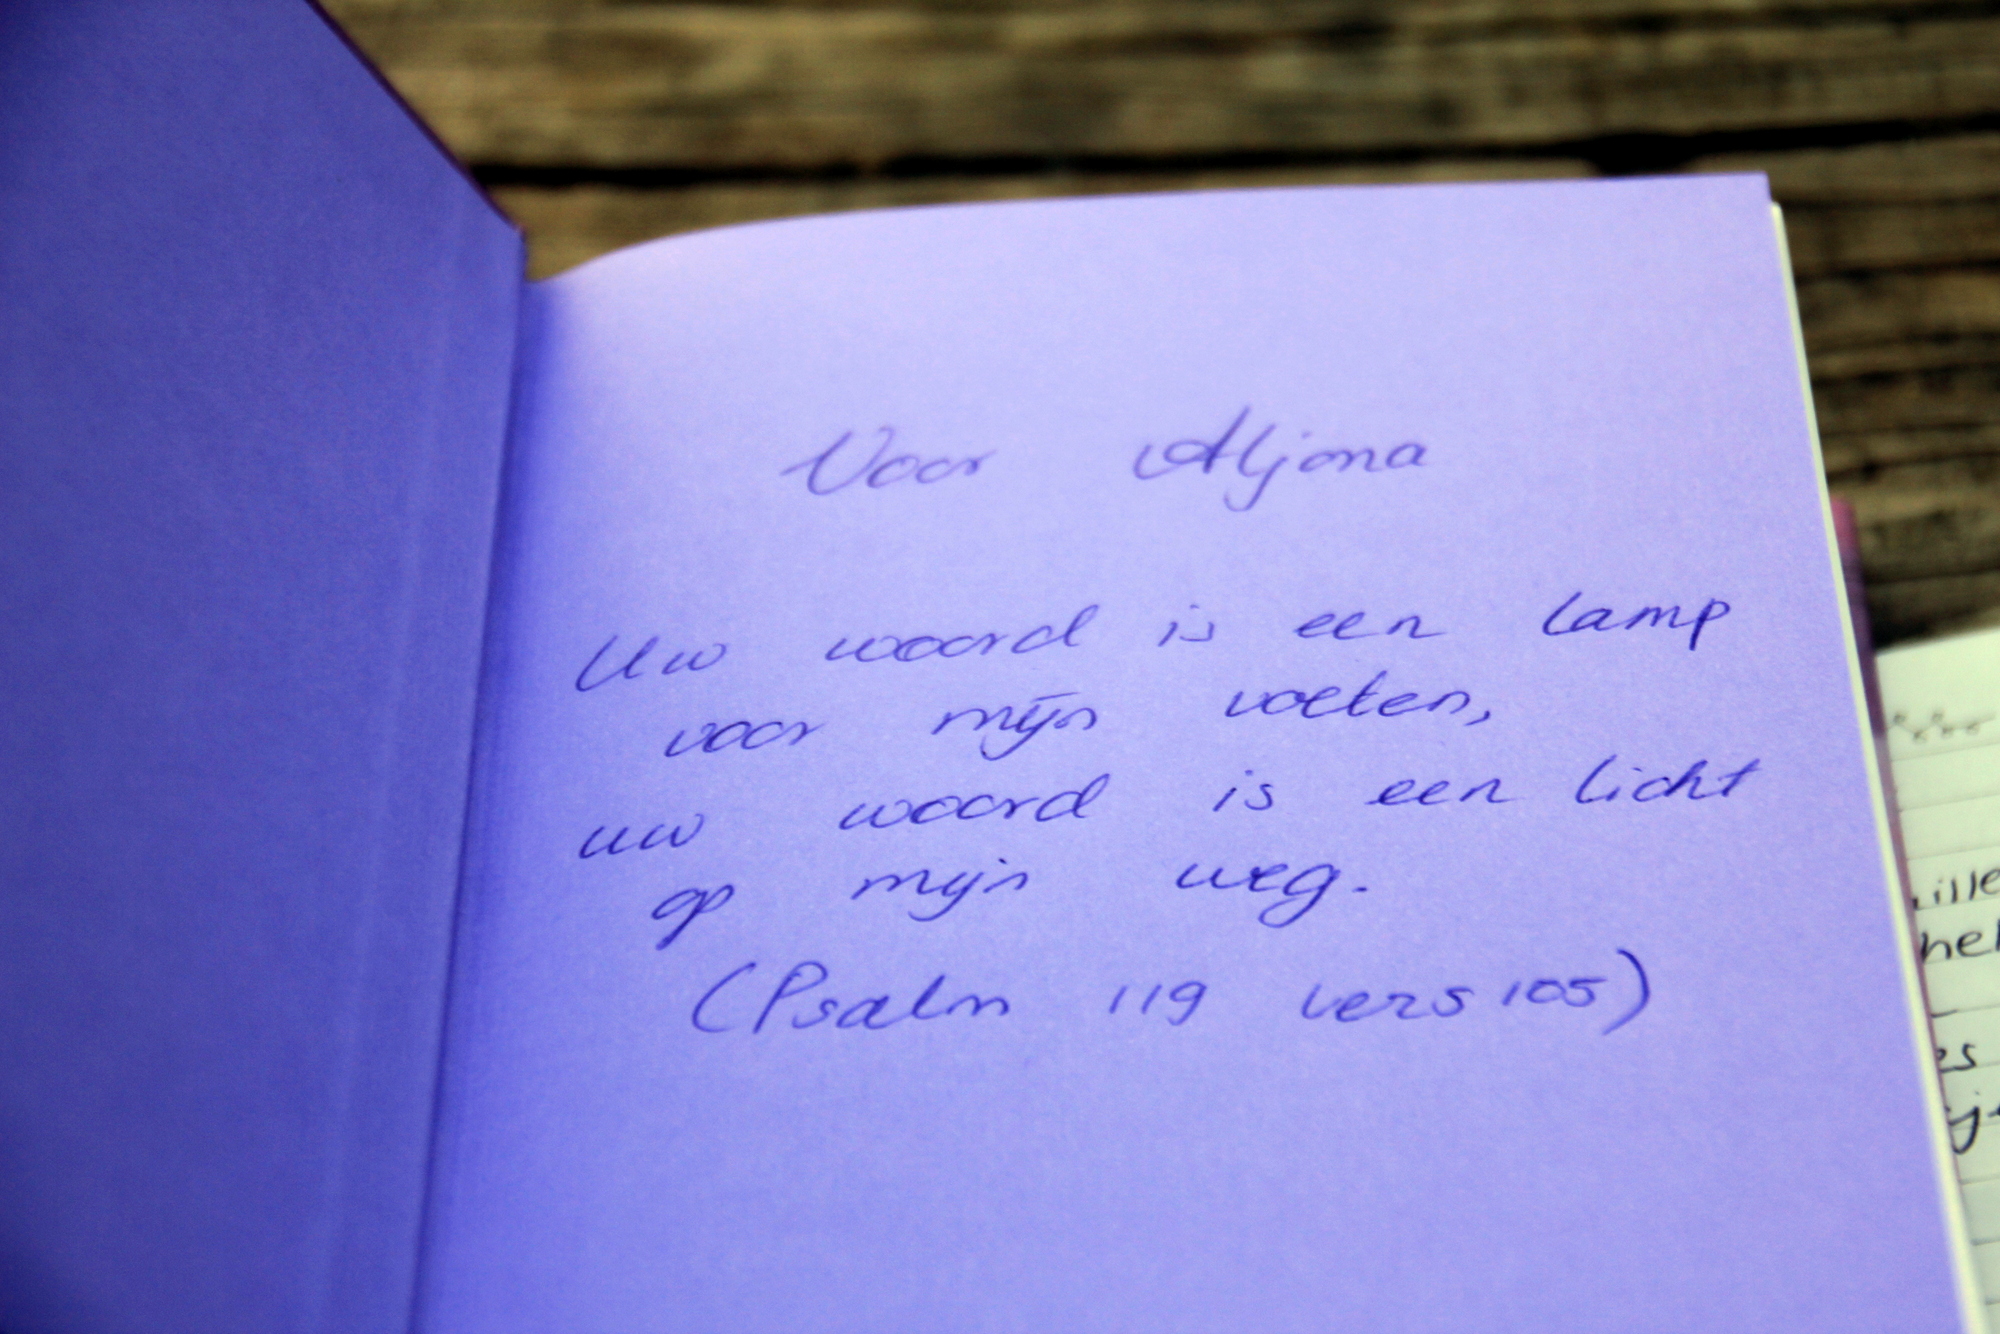 Voor Aljona
Uw woord is een lamp
voor mijn voeten,
uw woord is een licht
op mijn weg.
(Psalm 119 vers 105)